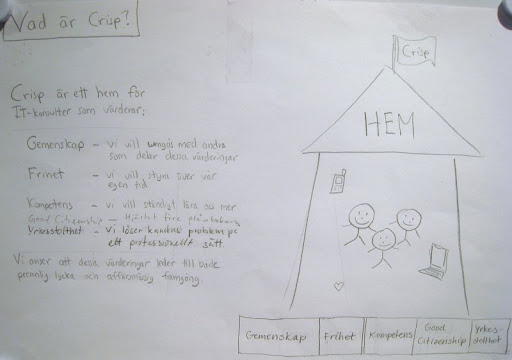 Vad är Crisp?
Crisp är ett hem för
IT-konsulter som värderar:
Gemenskap – vi vill umgås med andra
som delar dessa värderingar
Frihet – vi vill styra över vår
egen tid
Kompetens – vi vill ständigt lära oss mer
Good Citizenship – Hjärtat före plånboken
Yrkesstolthet – Vi löser kundens problem på
ett professionellt sätt.
Vi anser att dessa värderingar leder till både
personlig lycka och affärsmässig framgång.
Crisp
HEM
Gemenskap
Frihet
Kompetens
Good
Citizenship
Yrkes-
stolthet